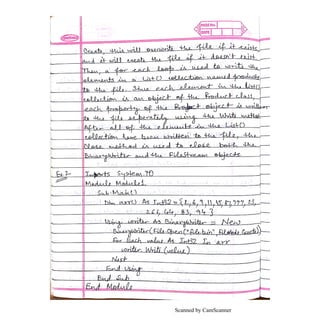 Create, this will overwrite the file if it exists,
and it will create the file if it doesn't exist.
Then, a for each loop is used to write the
elements in a List() collection named products
to the file. Since each element in the List()
collection is an object of the Product class,
each property of the Product object is written
to the file separately using the Write method
After all of the elements in the List()
collection have been written to the file, the
Close method is used to close both the
BinaryWriter and the FileStream objects
Ex:- Imports System.IO
Module Module1
Sub Main()
Dim arr() As Int32 = {2,6,9,11,15,
266, 44, 83, 94}
Using writer As BinaryWriter = New
BinaryWriter(File.Open("File.bin", FileMode.Create))
For Each value As Int32 In arr
writer.Write(value)
Next
End Using
End Sub
End Module
Scanned by CamScanner